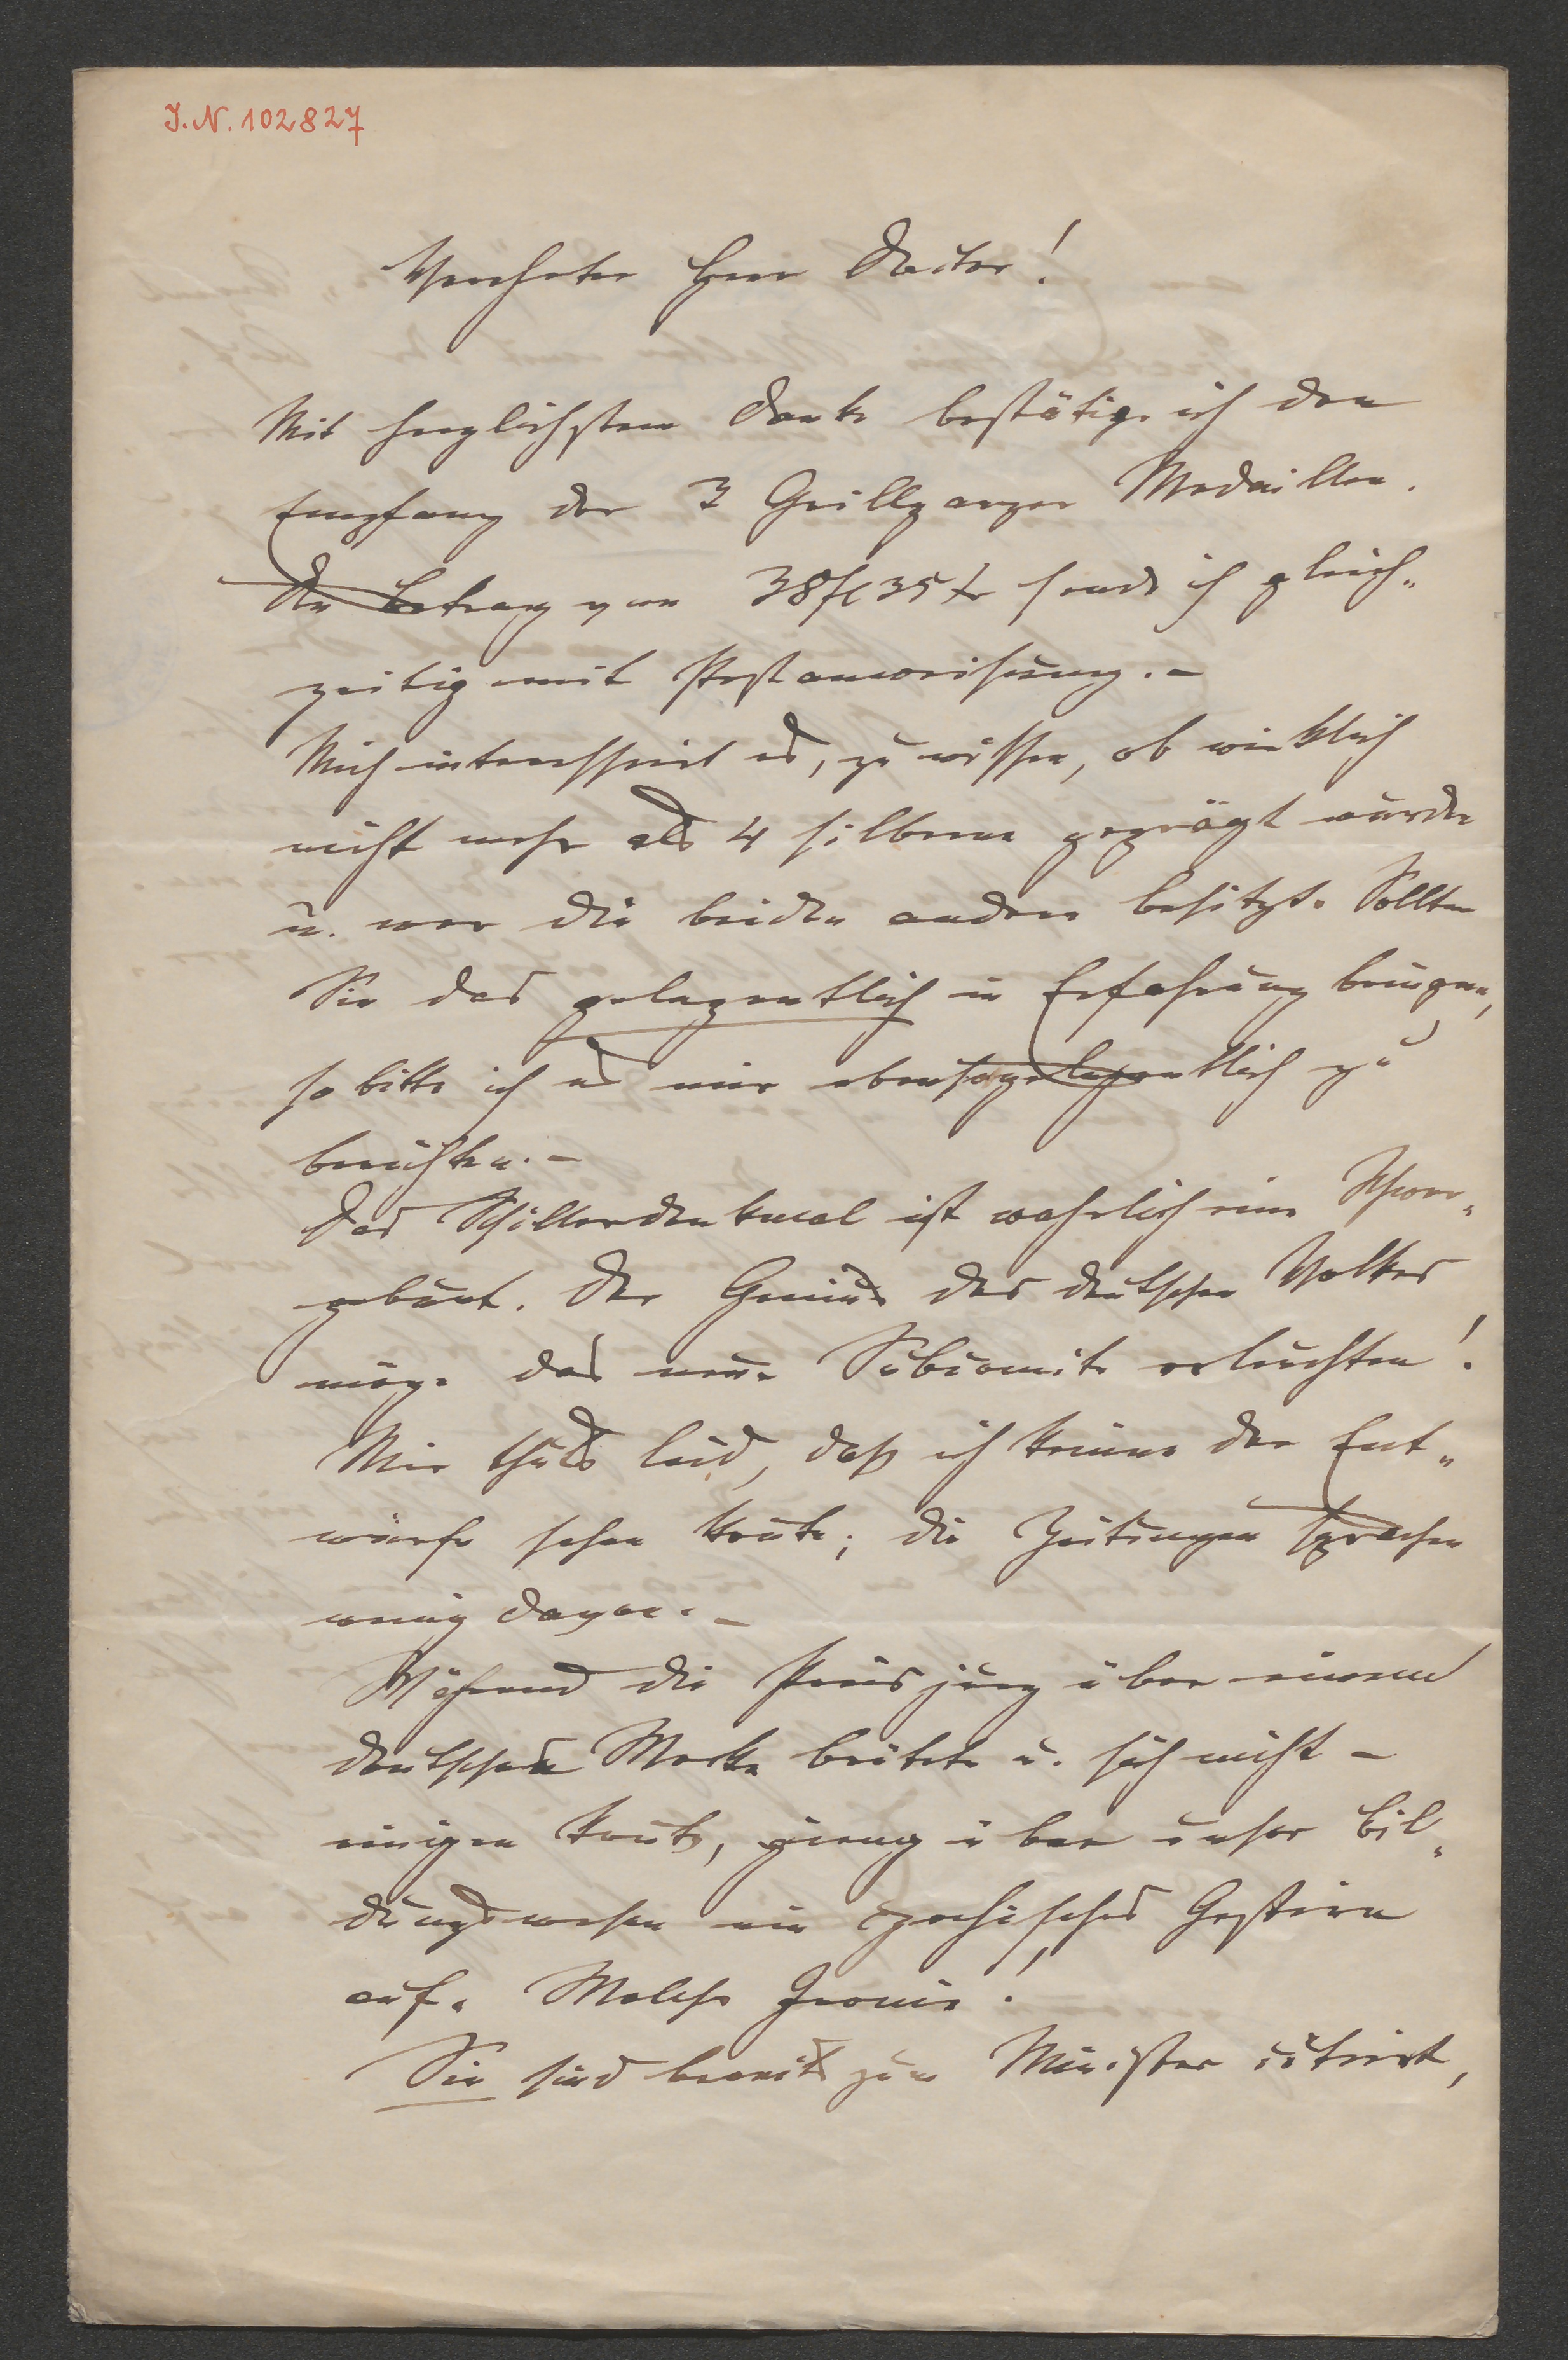 J. N. 102827
Verehrter Herr Doctor!
Mit herzlichstem Danke bestätige ich den
Empfang der 3 Grillparzer Medaillen.
Den Betrag von 38 fl 35 kr sende ich gleich-
zeitig mit Postanweisung. –
Mich interessirt es, zu wissen, ob wirklich
nicht mehr als 4 silberne geprägt wurden
u. wer die beiden andern besitzt. Sollten
Sie das gelegentlich in Erfahrung bringen,
so bitte ich es mir ebenso gelegentlich zu
berichten. –
Das Schillerdenkmal ist wahrlich eine
geburt. Der Genius des deutschen Volkes
möge das neue Subcomite erleuchten!
Mir thuts leid, daß ich keinen der Ent-
würfe sehen konnte; die Zeitungen sprachen
wenig davon. –
Während die Preisjury über einem
deutschen Werke brütete u. sich nicht –
einigen konnte, gieng über unser Bil-
dungswesen ein czechisches Gestirn
auf. Welche Ironie!
Sie sind bereits zum Minister citirt,